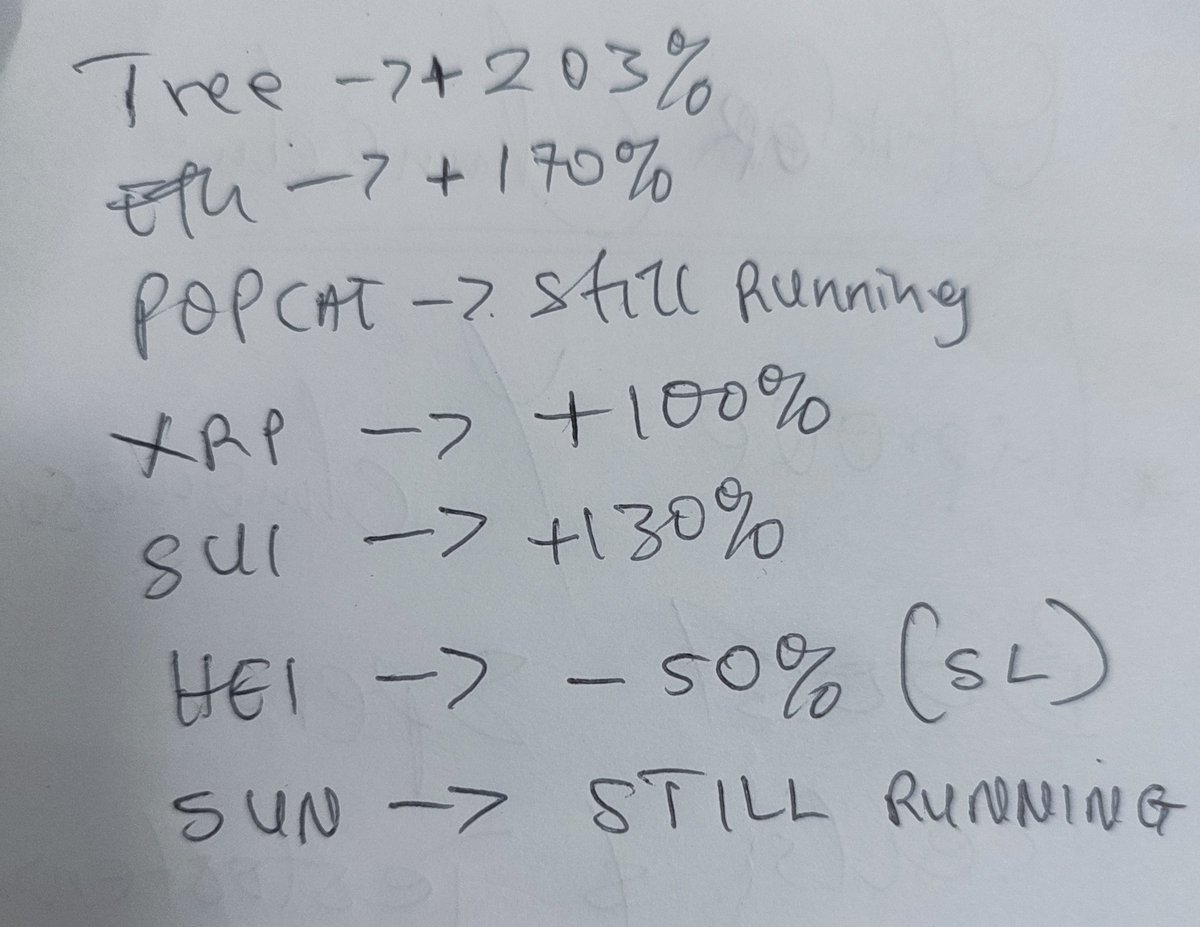 Tree -> + 203%
Eth -> + 170%
POPCAT -> Still Running
XRP -> +100%
SUI -> +130%
HEI -> - 50% (SL)
SUN -> STILL RUNNING